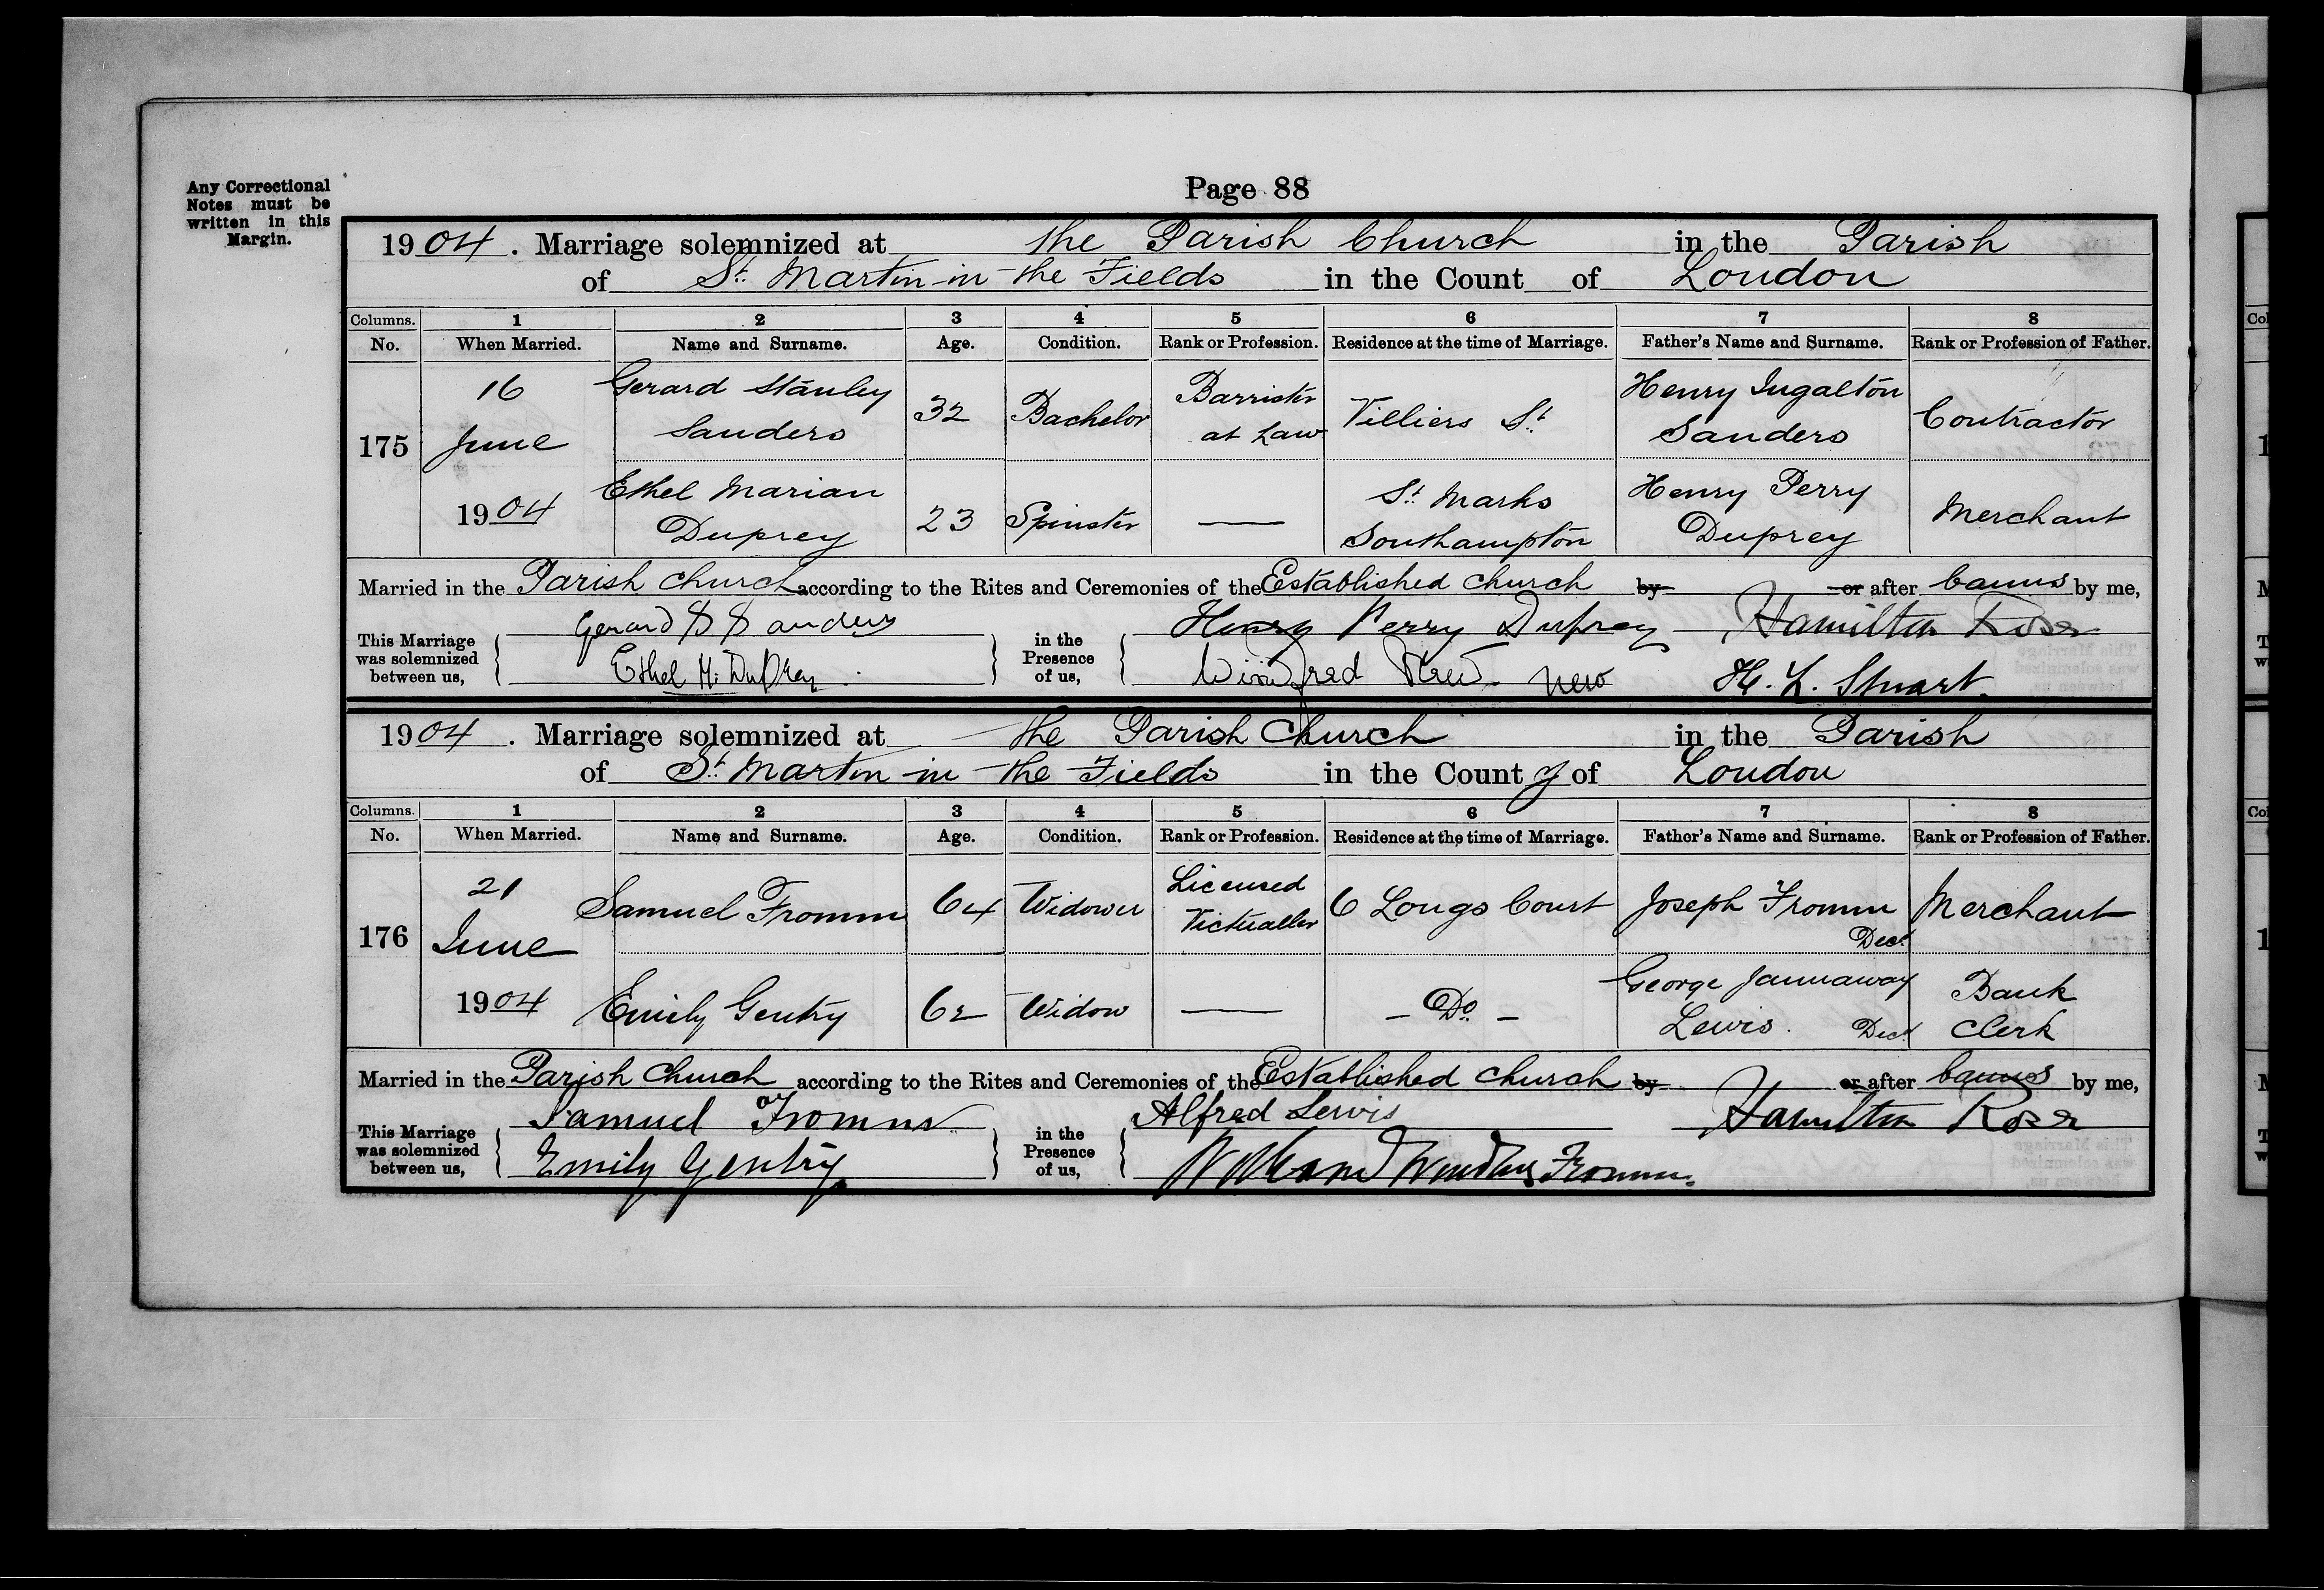 Any Correctional
Notes must be
written in this
Margin.
Page 88
1904. Marriage solemnized at the Parish Church in the Parish
of St. Martin-in-the Fields in the Count of London
Columns. 1 2 3 4 5 6 7 8
No. When Married. Name and Surname. Age. Condition. Rank or Profession. Residence at the time of Marriage. Father's Name and Surname. Rank or Profession of Father.
175
16
June
1904
Gerard Stanley
Sanders
32
Bachelor
Barrister
at Law
Villiers St.
Henry Ingalton
Sanders
Contractor
Ethel Marian
Duprey
23
Spinster
St. Marks
Southampton
Henry Perry
Duprey
Merchant
Married in the Parish Church according to the Rites and Ceremonies of the Established Church by or after banns by me,
This Marriage
was solemnized
between us,
Gerard S Sanders
Ethel M. Duprey
in the
Presence
of us,
Henry Perry Duprey
Winifred New
Hamilton Rose
H. L. Stuart.
1904. Marriage solemnized at the Parish Church in the Parish
of St. Martin-in-the Fields in the County of London
Columns. 1 2 3 4 5 6 7 8
No. When Married. Name and Surname. Age. Condition. Rank or Profession. Residence at the time of Marriage. Father's Name and Surname. Rank or Profession of Father.
176
21
June
1904
Samuel Fromm
64
Widower
Licensed
Victualler
6 Longs Court
Joseph Fromm
Decd.
Merchant
Emily Gentry
62
Widow
- Do. -
George Jannaway
Lewis. Decd
Bank
Clerk
Married in the Parish Church according to the Rites and Ceremonies of the Established Church by or after banns by me,
This Marriage
was solemnized
between us,
Samuel Fromm
Emily Gentry
in the
Presence
of us,
Alfred Lewis
Fromm.
Hamilton Rose